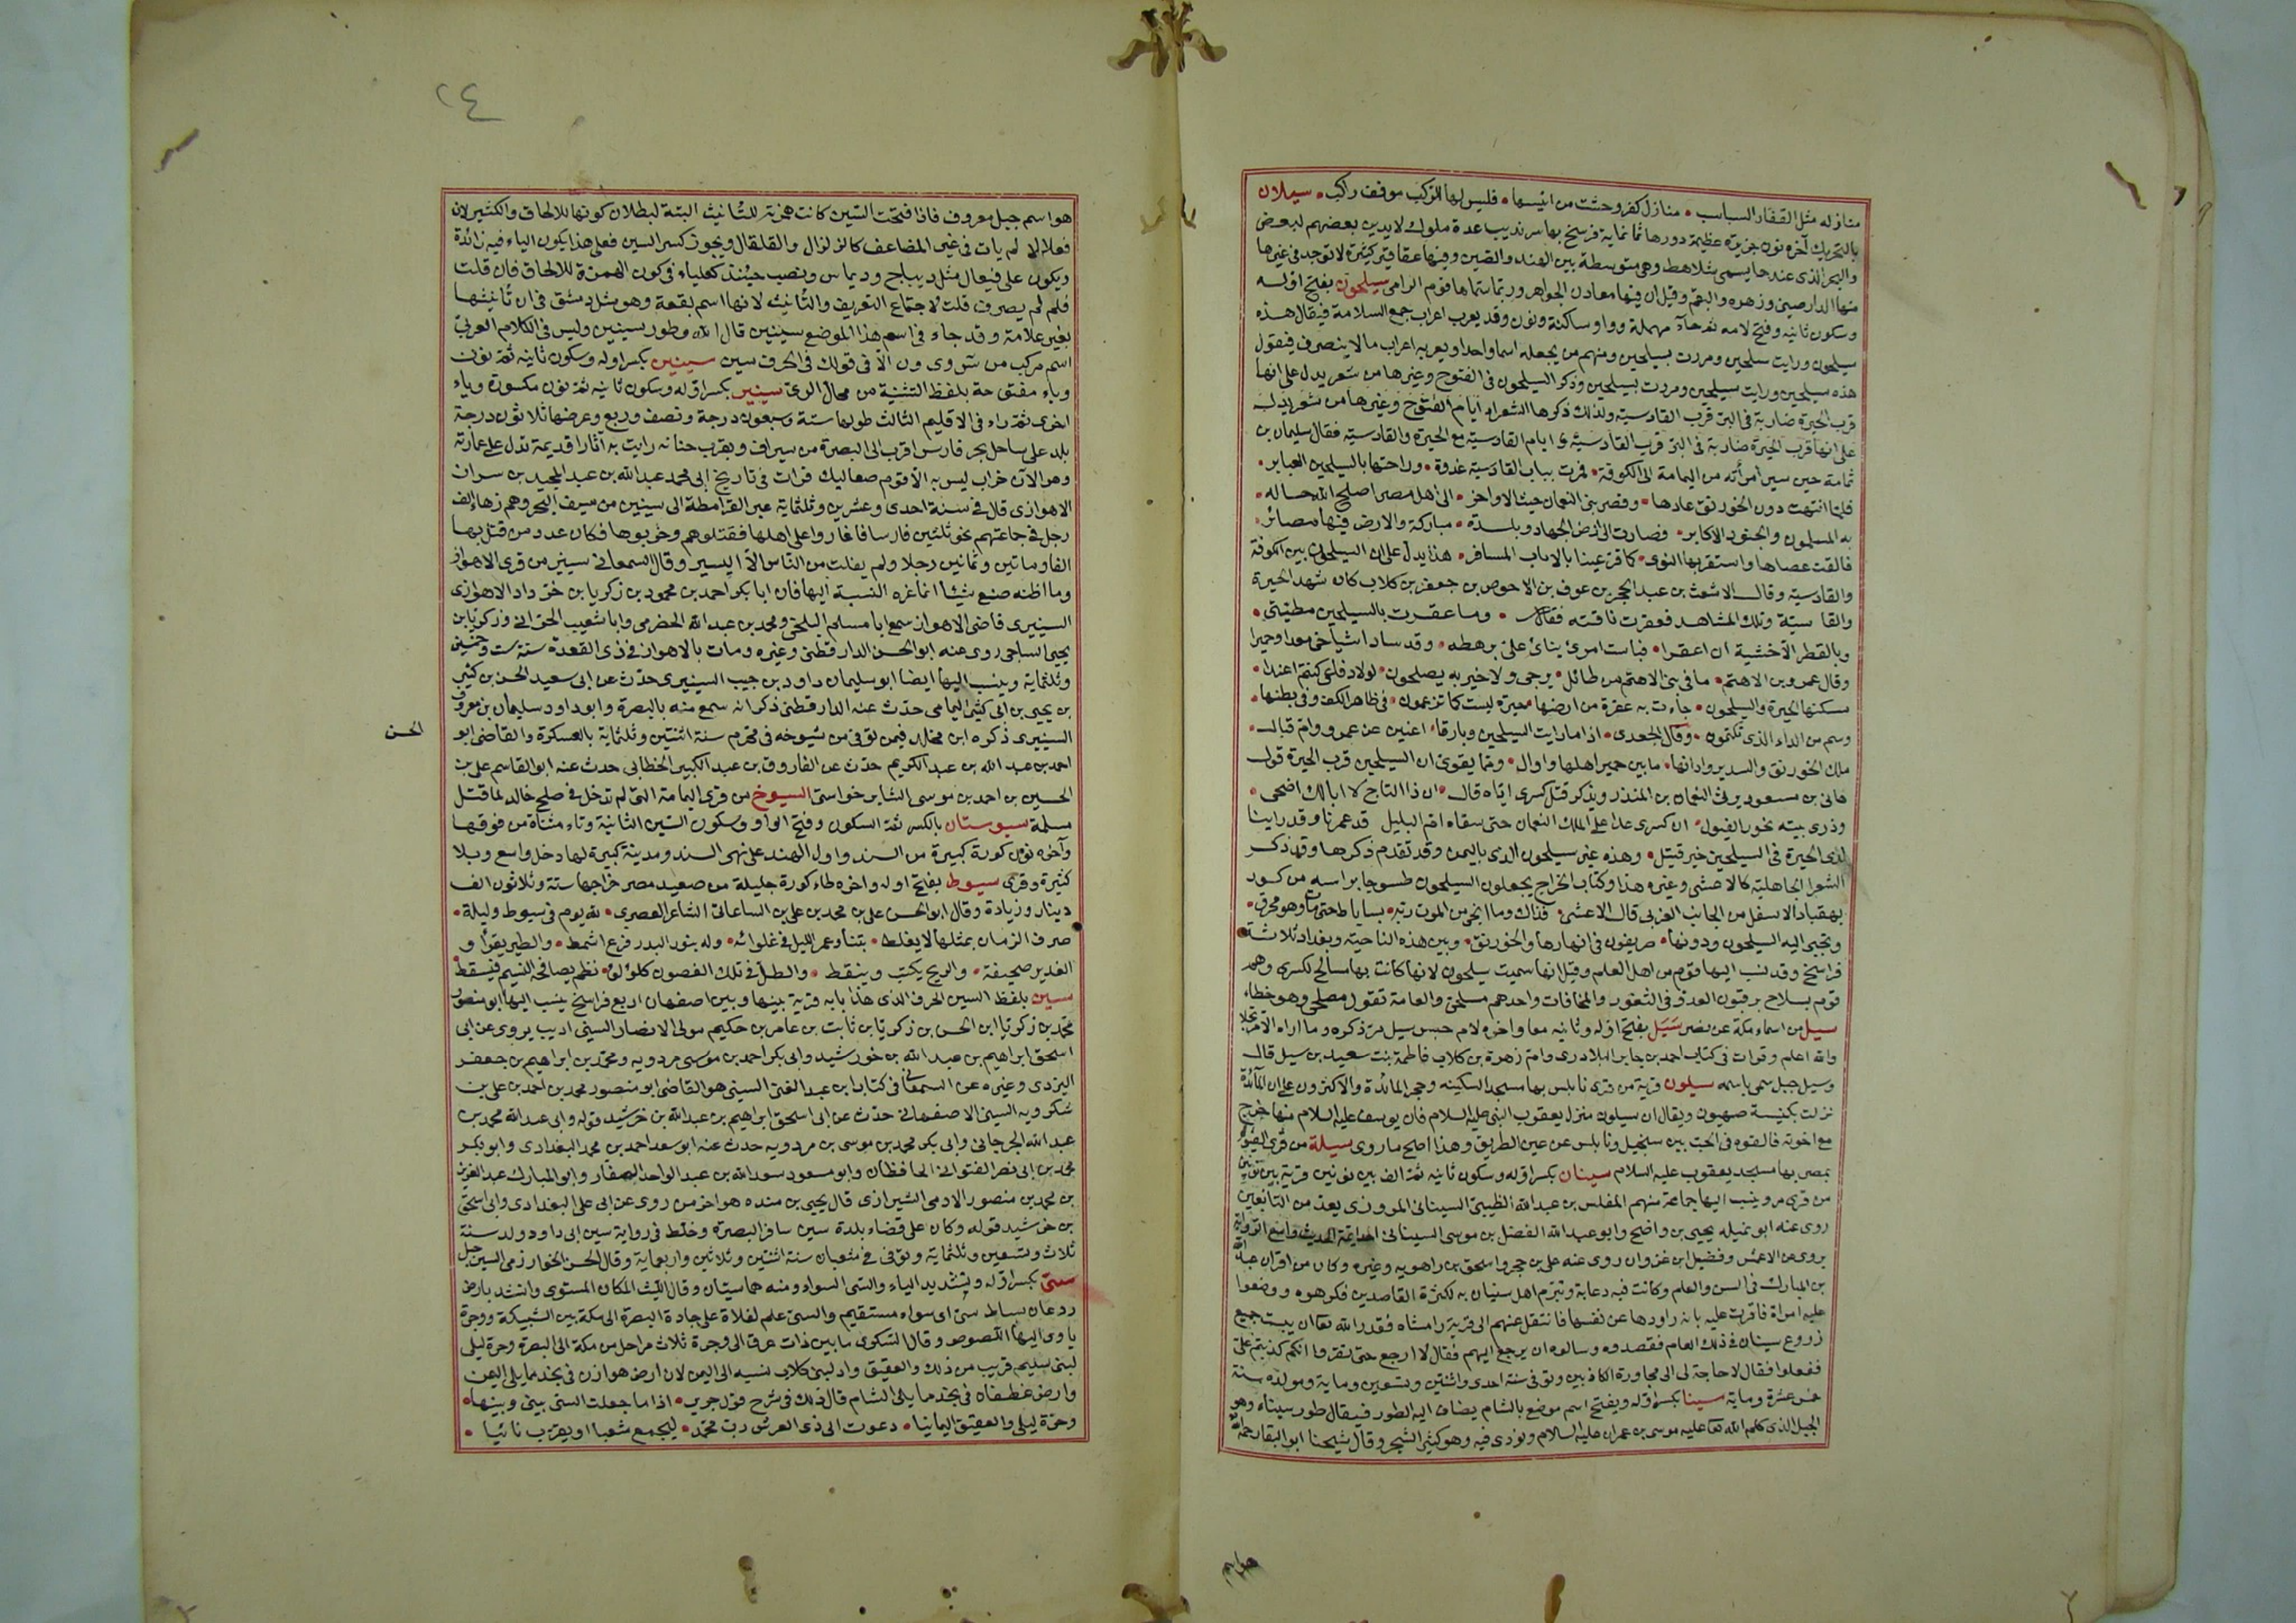 منازله مثل القفار السباسب • منازل كفر وحشت من انيسها • فليس بها للركب موقف راكب • سيلان
بالتحريك آخره نون جزيرة عظيمة دورها ثمانماية فرسخ بها سرنديب عدة ملوك لا يدين بعضهم لبعض
والبحر الذى عندها يسمى شلاهط وهى متوسطة بين الهند والصين وفيها عقاقير كثيرة لا توجد فى غيرها
منها الدارصينى وزهره والبقم وقيل ان فيها معادن الجواهر وربما سماها قوم الرامى سيلحون بفتح اوله
وسكون ثانيه وفتح لامه ثم حآء مهملة وواو ساكنة ونون وقد يعرب اعراب جمع السلامة فيقال هذه
سيلحون ورايت سيلحين ومررت بسيلحين ومنهم من يجعله اسما واحدا ويعربه اعراب ما لا ينصرف فيقول
هذه سيلحين ورايت سيلحين ومررت بسيلحين وذكر السيلحون فى الفتوح وغيرها من شعر يدل على انها
قرب الحيرة ضاربة فى البر قرب القادسية ولذلك ذكرها الشعراء ايام الفتوح وغيرها من شعر يدل
على انها قرب الحيرة ضاربة فى البر قرب القادسية و ايام القادسية مع الحيرة والقادسية فقال سليمان بن
ثمامة حين سير امرأته من اليمامة الى الكوفة • فمرت بباب القادسية غدوة • وراحتها بالسيلحين العباير •
فلما انتهت دون الخورنق عادها • وقصر بنى النعمان حيث الاواخر • الى اهل مصر اصلح الله حاله •
به المسلمون والجنود الاكابر • فصارت الى ارض الجهاد وبلدة • مباركة والارض فيها مصائر •
فالقت عصاها واستقر بها النوى • كما قر عينا بالاياب المسافر • هذا يدل على ان السيلحون بين الكوفة
والقادسية وقال الاشعث بن عبد الحجر بن عوف بن الاحوص بن جعفر بن كلاب كان شهد الحيرة
والقاسية وتلك المشاهد فعقرت ناقته فقال • وما عقرت بالسيلحين مطيتى •
وبالقطر الاخشية ان اعقرا • فباست امرئ يناى على برهطه • وقد ساد اشياخى معدا وحميرا
وقال عمرو بن الاهتم • ما فى بنى الاهتم من طائل • يرجى ولا خير به يصلحون • لولا دفاعى كنتم اعبدا •
مسكنها الحيرة والسيلحون • جاءت به عفرة من ارضها معيرة ليست كما تزعمون • فى ظاهر الكف وفى بطنها •
وسم من الداء الذى تكتمون • وقال الجعدى • اذا ما رايت السيلحين وبارقا • اغنين عن عمرو وام قبال •
ملك الخورنق والسدير ودانها • ما بين حمير اهلها واوال • ومما يقوى ان السيلحين قرب الحيرة قول
هانى بن مسعود يرثى النعمان بن المنذر ويذكر قتل كسرى اياه قال • ان ذا التاج لا ابا لك اضحى •
وذرى بيته نحور الفيول • ان كسرى عدا على الملك النعمان حتى سقاه ام البليل قد عمرنا وقد راينا
لدى الحيرة فى السيلحين خير قتيل • وهذه غير سيلحون الذى باليمن وقد تقدم ذكرها وقد ذكر
الشعرا الجاهلية كالاعشى وغيره هذا وكتاب الخراج يجعلون السيلحون طسوجا براسه من كور
بهقباد الاسفل من الجانب الغربى قال الاعشى • فذاك وما انجى من الموت ربه • بساباط حتى مات وهو محرق •
وتجبى اليه السيلحون ودونها • صريفون فى انهارها والخورنق • وبين هذه الناحية وبغداد ثلاثة
فراسخ وقد نسب اليها قوم من اهل العلم وقيل انها سميت سيلحون لانها كانت بها مسالح لكسرى وهم
قوم بسلاح يرقبون العدو فى الثغور والمخافات واحدهم مسلحى والعامة تقول مصلحى وهو خطاء
سيل من اسماء مكة عن نصر سَيَل بفتح اوله وثانيه معا واخره لام حبس سيل مرّ ذكره وما اراه الا مرتجلا
والله اعلم وقرات فى كتاب احمد بن جابر البلادرى وام زهرة بن كلاب فاطمة بنت سعيد بن سيل قال
وسيل جبل سمى باسمه سيلون قرية من قرى نابلس بها مسجد السكينه وحجر المائدة والاكثرون على ان المآئدة
نزلت بكنيسة صهيون ويقال ان سيلون منزل يعقوب النبى عليه السلام فان يوسف عليه السلام منها خرج
مع اخوته فالقوه فى الجب بين سنجيل ونابلس عن عين الطريق وهذا اصح ما روى سيلة من قرى الفيوم
بمصر بها مسجد يعقوب عليه السلام سينان بكسر اوله وسكون ثانيه ثم الف بين نونين قرية بين قرنين
من قرى مرو ينسب اليها جماعة منهم المفلس بن عبد الله الظيبى السينانى المروزى يعد من التابعين
روى عنه ابو تميله يحيى بن واضح وابو عبد الله الفضل بن موسى السينانى احد ايمة الحديث واسع الرواية
يروى عن الاعمش وفضيل ابن غزوان روى عنه على بن حجر واسحق بن راهويه وغيره وكان من اقران عبد الله
بن المبارك فى السن والعلم وكانت فيه دعابة وتبرم اهل سنيان به لكثرة القاصدين فكرهوه ووضعوا
عليه امراة فاقرت عليه بانه راودها عن نفسها فانتقل عنهم الى قرية رامشاه فقدر الله تعا ان يبست جميع
زروع سينان فى ذلك العام فقصدوه وسالوه ان يرجع اليهم فقال لا ارجع حتى تقروا انكم كذبتم على
ففعلوا فقال لا حاجة لى الى مجاورة الكاذبين وتوفى سنة احدى واثنتين وتسعين وماية ومولده سنة
خمس عشرة وماية سينا بكسر اوله ويفتح اسم موضع بالشام يضاف اليه الطور فيقال طور سيناء وهو
الجبل الذى كلم الله تعا عليه موسى بن عمران عليه السلام ونودى فيه وهو كثير الشجر وقال شيخنا ابو البقا رحمه الله
هو اسم
٢٤
هو اسم جبل معروف فاذا فتحت السين كانت همزته للتأنيث البتة لبطلان كونها للالحاق والكثير لان
فعلالا لم يات فى غير المضاعف كالزلزال والقلقال ويجوز كسر السين فعلى هذا يكون الياء فيه زائدة
ويكون على فيعال مثل ديباج وديماس وينصب حينئذ كعلياء فى كون الهمزة للالحاق فان قلت
فلم لم يصرف قلت لاجتماع التعريف والتأنيث لانها اسم بقعة وهو مثل دمشق فى ان تأنيثها
بغير علامة وقد جاء فى اسم هذا الموضع سينين قال الله وطور سينين وليس فى الكلام العربى
اسم مركب من س وى ون الّا فى قولك فى الحرف سين سينين بكسر اوله وسكون ثانيه ثم نون
وياء مفتوحة بلفظ التثنية من محال الرى سينيز بكسر اوله وسكون ثانيه ثم نون مكسورة وياء
اخرى ثم زاء فى الاقليم الثالث طولها ستة وسبعون درجة ونصف وربع وعرضها ثلاثون درجة
بلد على ساحل بحر فارس اقرب الى البصرة من سيراف وبقرب جنانه رايت به آثارا قديمة تدل على عمارته
وهو الآن خراب ليس به الا قوم صعاليك قرات فى تاريخ ابى محمد عبد الله بن عبد المجيد بن سران
الاهوازى قال فى سنة احدى وعشرين وثلثماية عبر القرامطة الى سينيز من سيف البحر وهم زهاء الف
رجل فى جماعتهم نحو ثلثين فارسا فاغاروا على اهلها فقتلوهم وخربوها فكان عدد من قتل بها
الفا وماتين وثمانين رجلا ولم يفلت من الناس الا اليسير وقال السمعانى سينيز من قرى الاهواز
وما اظنه صنع شيئا انما غره النسبة اليها فان ابا بكر احمد بن محمود بن زكريا بن خرداد الاهوازى
السينيزى قاضى الاهواز سمع ابا مسلم البلخى ومحمد بن عبد الله الحضرمى وابا شعيب الحرانى وزكريا بن
يحيى الساجى روى عنه ابو الحسن الدارقطنى وغيره ومات بالاهواز فى ذى القعدة سنة ست وخمسين
وثلثماية وينسب اليها ايضا ابو سليمان داود بن جيب السينيزى حدث عن ابى سعيد الحسن بن كثير
بن يحيى بن ابى كثير اليمامى حدث عنه الدارقطنى ذكر انه سمع منه بالبصرة وابو داود سليمان بن معروف
السينيزى ذكره ابن مخلد فيمن توفى من شيوخه فى محرم سنة اثنتين وثلثماية بالعسكرة والقاضى ابو
الحسن
احمد بن عبد الله بن عبد الكريم حدث عن الفاروق بن عبد الكبير الخطابى حدث عنه ابو القاسم على بن
الحسين بن احمد بن موسى الشابرخواستى السيوخ من قرى اليمامة التى لم تدخل فى صلح خالد لما قتل
مسلمة سيوستان بالكسر ثم السكون وفتح الواو وسكون السين الثانية وتاء مثناة من فوقها
وآخره نون كورة كبيرة من السند واول الهند على نهر السند ومدينة كبيرة لها دخل واسع وبلا
كثيرة وقرى سيوط بفتح اوله واخره طاء كورة جليلة من صعيد مصر خراجها ستة وثلاثون الف
دينار وزيادة وقال ابو الحسن على بن محمد بن على بن الساعاتى الشاعر العصرى • لله يوم فى سيوط وليلة •
صرف الزمان بمثلها لا يغلط • بتنا وعمر الليل فى غلوائه • وله بنور البدر فرع اشمط • والطير يقرأ و
الغدير صحيفة • والريح يكتب وينقط • والطل فى تلك الغصون كلؤلؤ • نظم يصافحه النسيم فيسقط
سين بلفظ السين الحرف الذى هذا بابه قرية بينها وبين اصفهان اربع فراسخ ينسب اليها ابو منصور
محمد بن زكريا ابن الحسن بن زكريا بن ثابت بن عامر بن حكيم مولى الانصار السينى اديب يروى عن ابى
اسحق ابراهيم بن عبد الله بن خورشيد وابى بكر احمد بن موسى مردويه ومحمد بن ابراهيم بن جعفر
اليزدى وغيره عن السمعانى فى كتاب ابن عبد الغنى السينى هو القاضى ابو منصور محمد بن احمد بن على بن
شكرويه السينى الاصفهانى حدث عن ابى اسحق ابراهيم بن عبد الله بن خرشيد قوله وابى عبد الله محمد بن
عبد الله الجرجانى وابى بكر محمد بن موسى بن مردويه حدث عنه ابو سعد احمد بن محمد البغدادى وابو بكر
محمد بن ابى نصر الفتوانى الحافظان وابو مسعود سود الله بن عبد الواحد الصفار وابو المبارك عبد العزيز
بن محمد بن منصور الادمى الشيرازى قال يحيى بن منده هو اخر من روى عن ابى على البغدادى وابى اسحق
بن خرشيد قوله وكان على قضاء بلدة سين سافر البصرة وخلط فى رواية سين ابى داود ولد سنة
ثلاث وتسعين وثلثماية وتوفى فى شعبان سنة اثنتين وثلاثين واربعماية وقال الحسن الخوارزمى السين جبل
سىّ بكسر اوله وتشديد الياء والسى السواء ومنه هما سيان وقال الليث المكان المستوى وانشد بارض
ردعان بساط سىّ اى سواء مستقيم والسى علم لفلاة على جادة البصرة الى مكة بين الشبيكة ووجرة
ياوى اليها اللصوص وقال السكوى ما بين ذات عرق الى وجرة ثلاث مراحل من مكة الى البصرة وحرة ليلى
لبنى سليم قريب من ذلك والعقيق واد لبنى كلاب نسبه الى اليمن لان ارض هوازن فى نجد مما يلى اليمن
وارض غطفان فى نجد مما يلى الشام قال ذلك فى شرح قول جرير • اذا ما جعلت السى بينى وبينها •
وحرة ليلى والعقيق اليمانيا • دعوت الى ذى العرش رب محمد • ليجمع شعبا او يقرب نائيا •